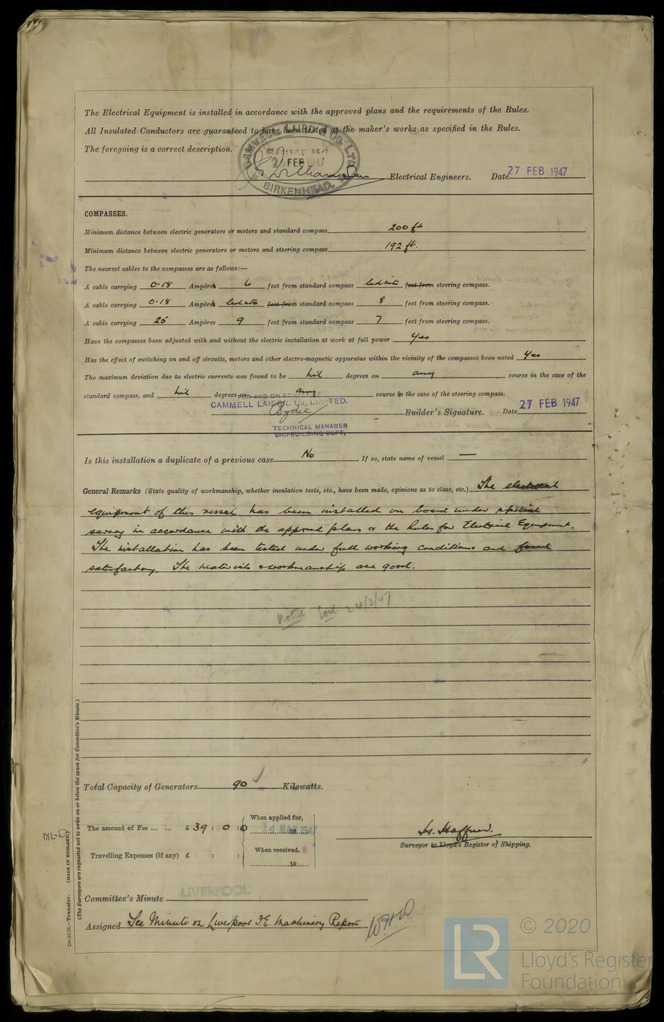 The Electrical Equipment is installed in accordance with the approved plans and the requirements of the Rules.
All Insulated Conductors are guaranteed to have been tested at the maker's works as specified in the Rules.
The foregoing is a correct description.
CAMMELL LAIRD & CO. LTD.
FEB 1947
BIRKENHEAD.
Electrical Engineers. Date 27 FEB 1947
COMPASSES.
Minimum distance between electric generators or motors and standard compass 200 ft
Minimum distance between electric generators or motors and steering compass 192 ft.
The nearest cables to the compasses are as follows:—
A cable carrying 0.18 Ampères 6 feet from standard compass led into feet from steering compass.
A cable carrying 0.18 Ampères led into feet from standard compass 8 feet from steering compass.
A cable carrying 25 Ampères 9 feet from standard compass 7 feet from steering compass.
Have the compasses been adjusted with and without the electric installation at work at full power Yes
Has the effect of switching on and off circuits, motors and other electro-magnetic apparatus within the vicinity of the compasses been noted Yes
The maximum deviation due to electric currents was found to be Nil degrees on any course in the case of the
standard compass, and Nil degrees on any course in the case of the steering compass.
FOR AND ON BEHALF OF
CAMMELL LAIRD & CO. LIMITED.
Builder's Signature. Date 27 FEB 1947
TECHNICAL MANAGER
SHIPBUILDING DEPT.
Is this installation a duplicate of a previous case No If so, state name of vessel —
General Remarks (State quality of workmanship, whether insulation tests, etc., have been made, opinions as to class, etc.) The electrical
equipment of this vessel has been installed on board under special
survey in accordance with the approved plans & the Rules for Electrical Equipment.
The installation has been tested under full working conditions and found
satisfactory. The materials & workmanship are good.
Noted
Total Capacity of Generators 90 Kilowatts.
The amount of Fee ... ... £ 39 : 0 : 0
When applied for,
19
Travelling Expenses (if any) £ : :
When received.
19
H. Haffner.
Surveyor to Lloyd's Register of Shipping.
LIVERPOOL
Committee's Minute
Assigned See Minute on Liverpool F.E. Machinery Report
(The Surveyors are requested not to write on or below the space for Committee's Minute.)
(MADE IN ENGLAND)
LR
© 2020
Lloyd's Register
Foundation